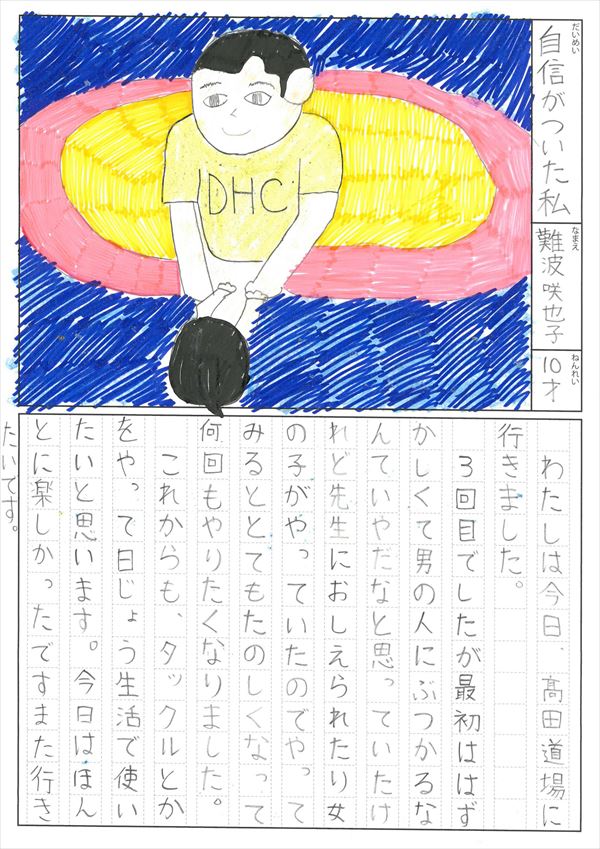 だいめい
自信がついた私
なまえ
難波咲也子
ねんれい
10才
DHC
わたしは今日、髙田道場に
行きました。
3回目でしたが最初ははず
かしくて男の人にぶつかるな
んていやだなと思っていたけ
れど先生におしえられたり女
の子がやっていたのでやって
みるととてもたのしくなって
何回もやりたくなりました。
これからも、タックルとか
をやって日じょう生活で使い
たいと思います。今日はほん
とに楽しかったですまた行き
たいです。